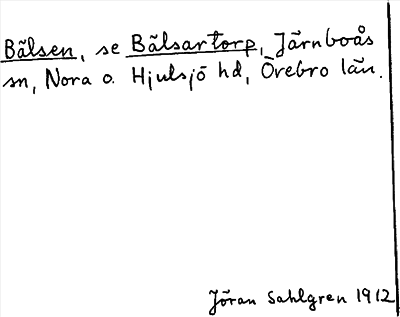 Bälsen, se Bälsartorp, Järnboås
sn, Nora o. Hjulsjö hd, Örebro län.
Jöran Sahlgren 1912